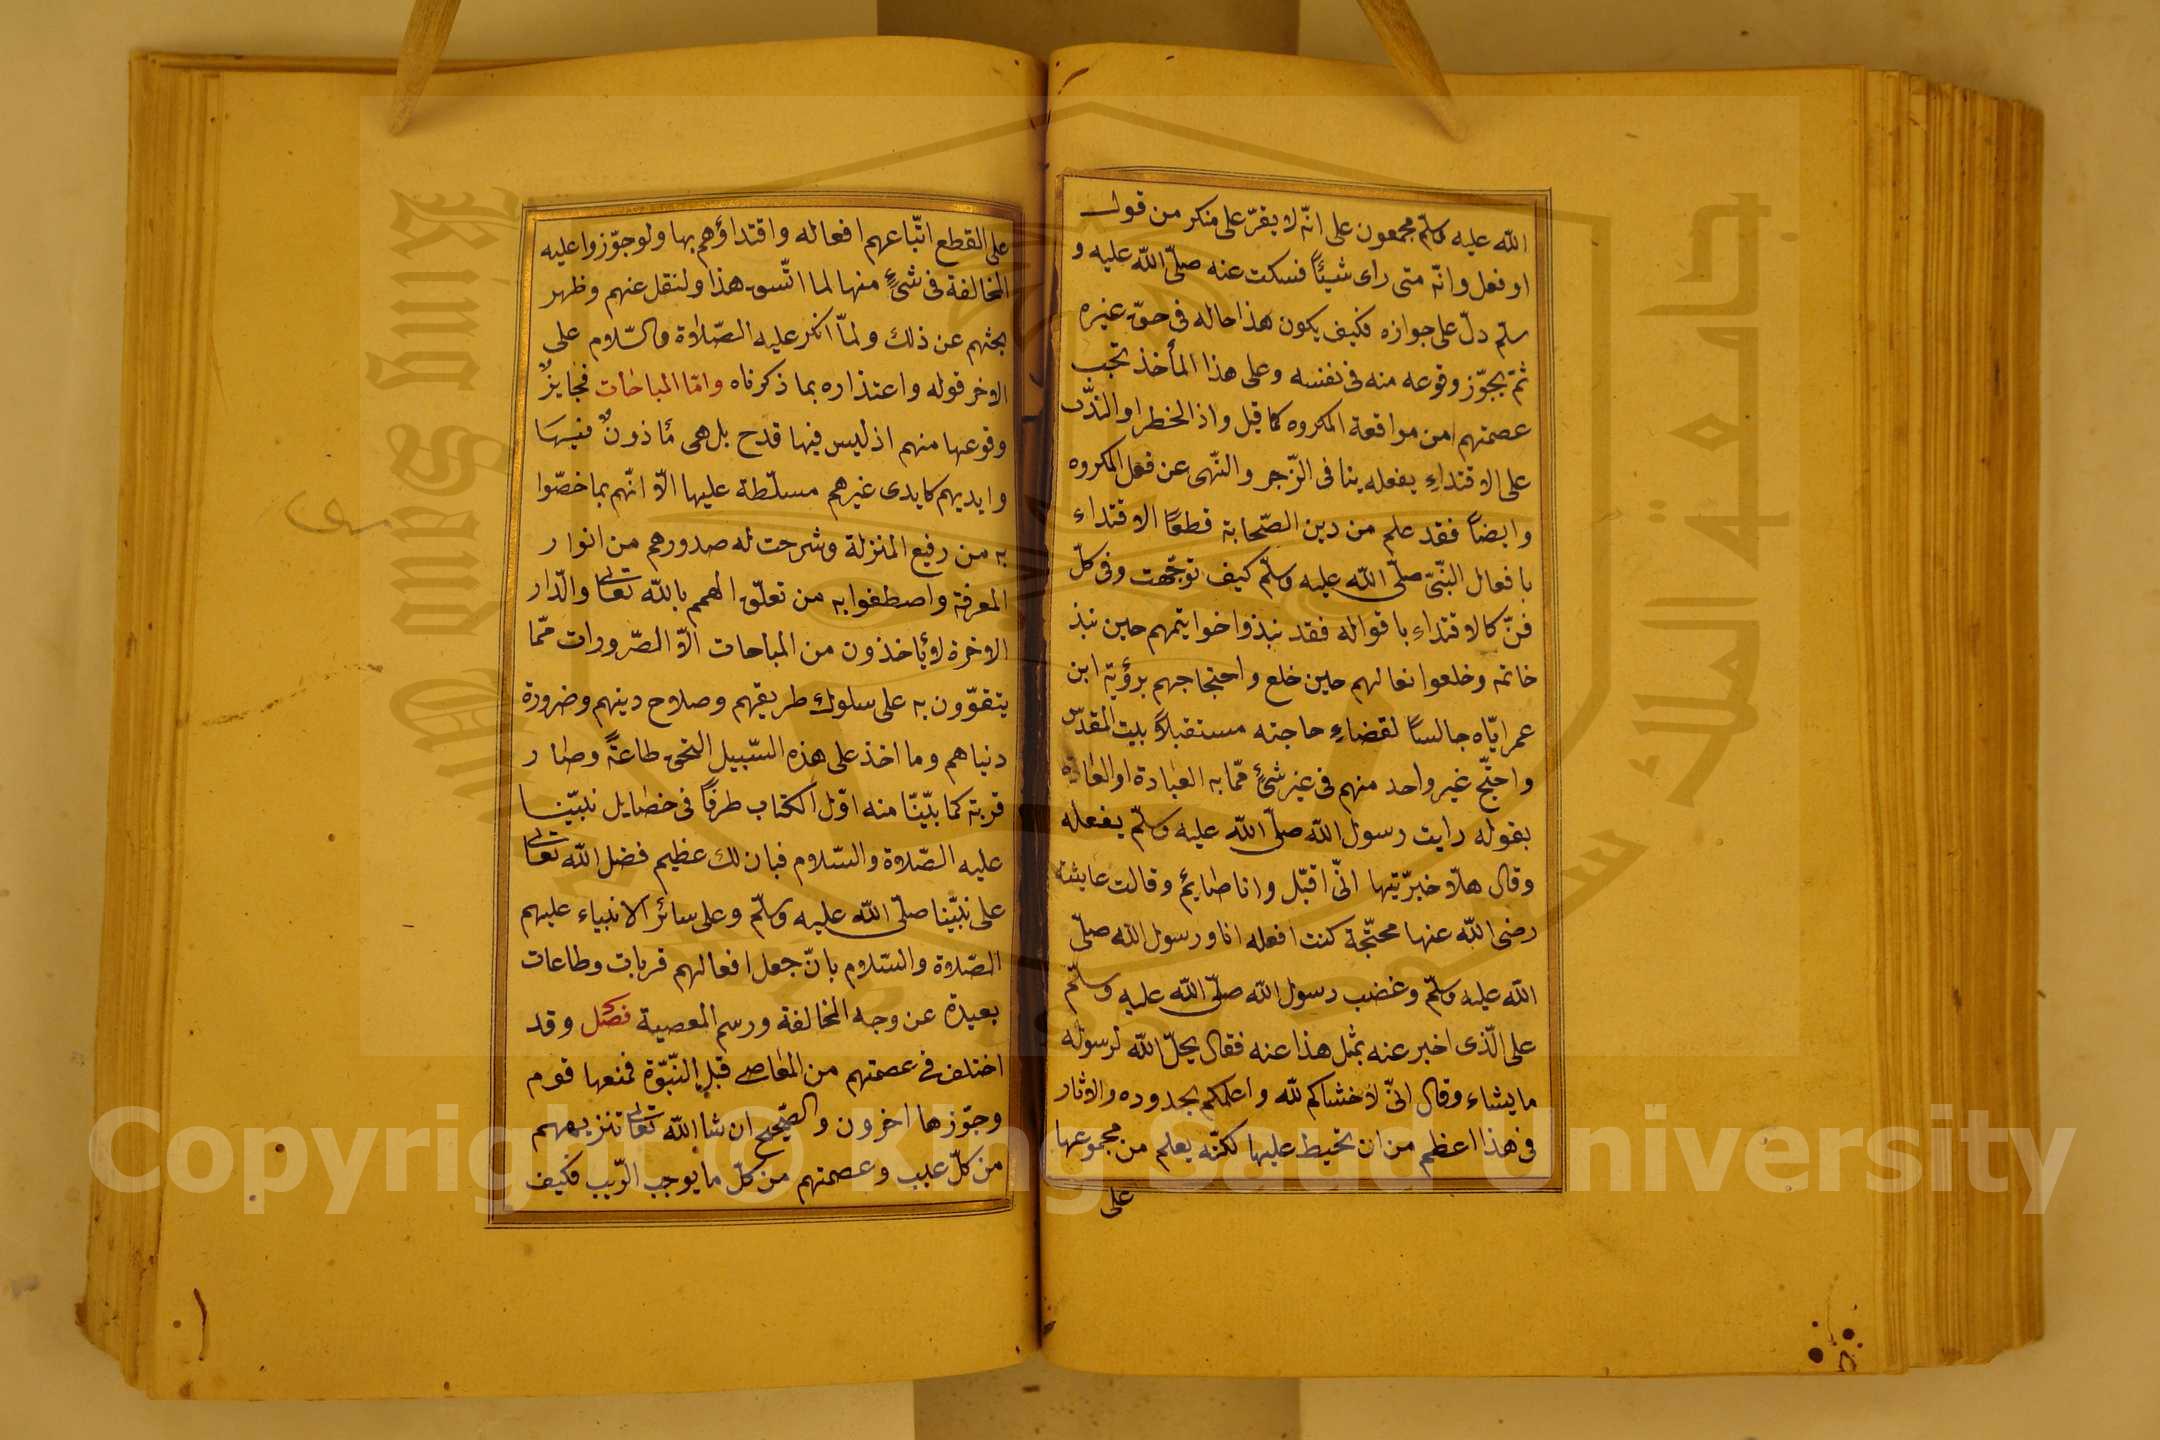 الله عليه وسلّم مجمعون على انّه لا يقرّ على منكر من قول
او فعل وانّه متى راى شيئاً فسكت عنه صلّى الله عليه و
سلّم دلّ على جوازه فكيف يكون هذا حاله فى حقّ غيره
ثمّ يجوّز وقوعه منه فى نفسه وعلى هذا المأخذ تجب
عصمتهم من مواقعة المكروه كما قيل واذ الخطر او الندّب
على الاقتداءِ بفعله ينافى الزّجر والنّهى عن فعل المكروه
وايضاً فقد علم من دين الصّحابة قطعًا الاقتداء
بافعال النبّىّ صلّى الله عليه وسلّم كيف توجّهت وفى كلّ
فنّ كالاقتداءِ باقواله فقد نبذوا خواتيمهم حين نبذ
خاتمه وخلعوا نعالهم حين خلع واحتجاجهم برؤية ابن
عمر ايّاه جالسًا لقضاءِ حاجته مستقبلاً بيت المقدّس
واحتجّ غير واحد منهم فى غير شئٍ ممّا به العبادة او العادة
بقوله رايت رسول الله صلّى الله عليه وسلّم يفعله
وقال هلاّ خبرّتيها انّى اقبّل وانا صايم وقالت عايشة
رضى الله عنها محتجّة كنت افعله انا ورسول الله صلّى
الله عليه وسلّم وغضب رسول الله صلّى الله عليه وسلّم
على الّذى اخبر عنه بمثل هذا عنه فقال يحلّ الله لرسوله
ما يشاء وقال انّى لاخشاكم لله واعلمكم بحدوده والاثار
فى هذا اعظم من ان نحيط عليها لكنّه يعلم من مجموعها
على
على القطع اتّباعهم افعاله واقتداؤهم بها ولو جوّزوا عليه
المخالفة فى شئٍ منها لما اتّسق هذا ولنقل عنهم وظهر
بحثهم عن ذلك ولمّا انكر عليه الصّلاة والسّلام على
الاخر قوله واعتذاره بما ذكرناه وامّا المباحات فجايزٌ
وقوعها منهم اذ ليس فيها قدح بل هى مأذونٌ فيها
وايديهم كايدى غيرهم مسلّطة عليها الاّ انّهم بما خصّوا
به من رفيع المنزلة وشرحت له صدورهم من انوار
المعرفة واصطفوا به من تعلّق الهمم بالله تعالى والدّار
الاخرة لا يأخذون من المباحات الاّ الضّرورات ممّا
يتقوّون به على سلوك طريقهم وصلاح دينهم وضرورة
دنياهم وما اخذ على هذه السّبيل التحق طاعةً وصار
قربة كما بيّنّا منه اوّل الكتاب طرفًا فى خصايل نبيّنا
عليه الصّلاة والسّلام فبان لك عظيم فضل الله تعالى
على نبيّنا صلّى الله عليه وسلّم وعلى سائر الانبياء عليهم
الصّلاة والسّلام بانّ جعل افعالهم قربات وطاعات
بعيدة عن وجه المخالفة ورسم المعصية فصل وقد
اختلف فى عصمتهم من المعاصى قبل النّبوّة فمنعها قوم
وجوّزها اخرون والصّحيح ان شا الله تعالى تنزيههم
من كلّ عيب وعصمتهم من كلّ ما يوجب الرّيب فكيف
King Saud University
جامعة الملك سعود
Copyright © King Saud University